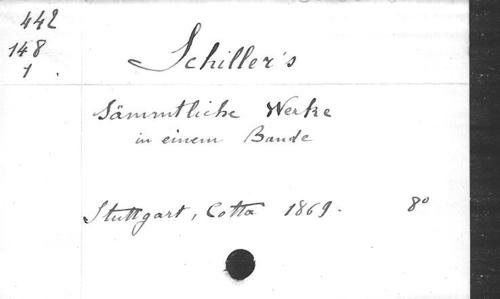 442
148
1.
Schiller's
Sämmtliche Werke
in einem Bande
Stuttgart, Cotta 1869. 8°